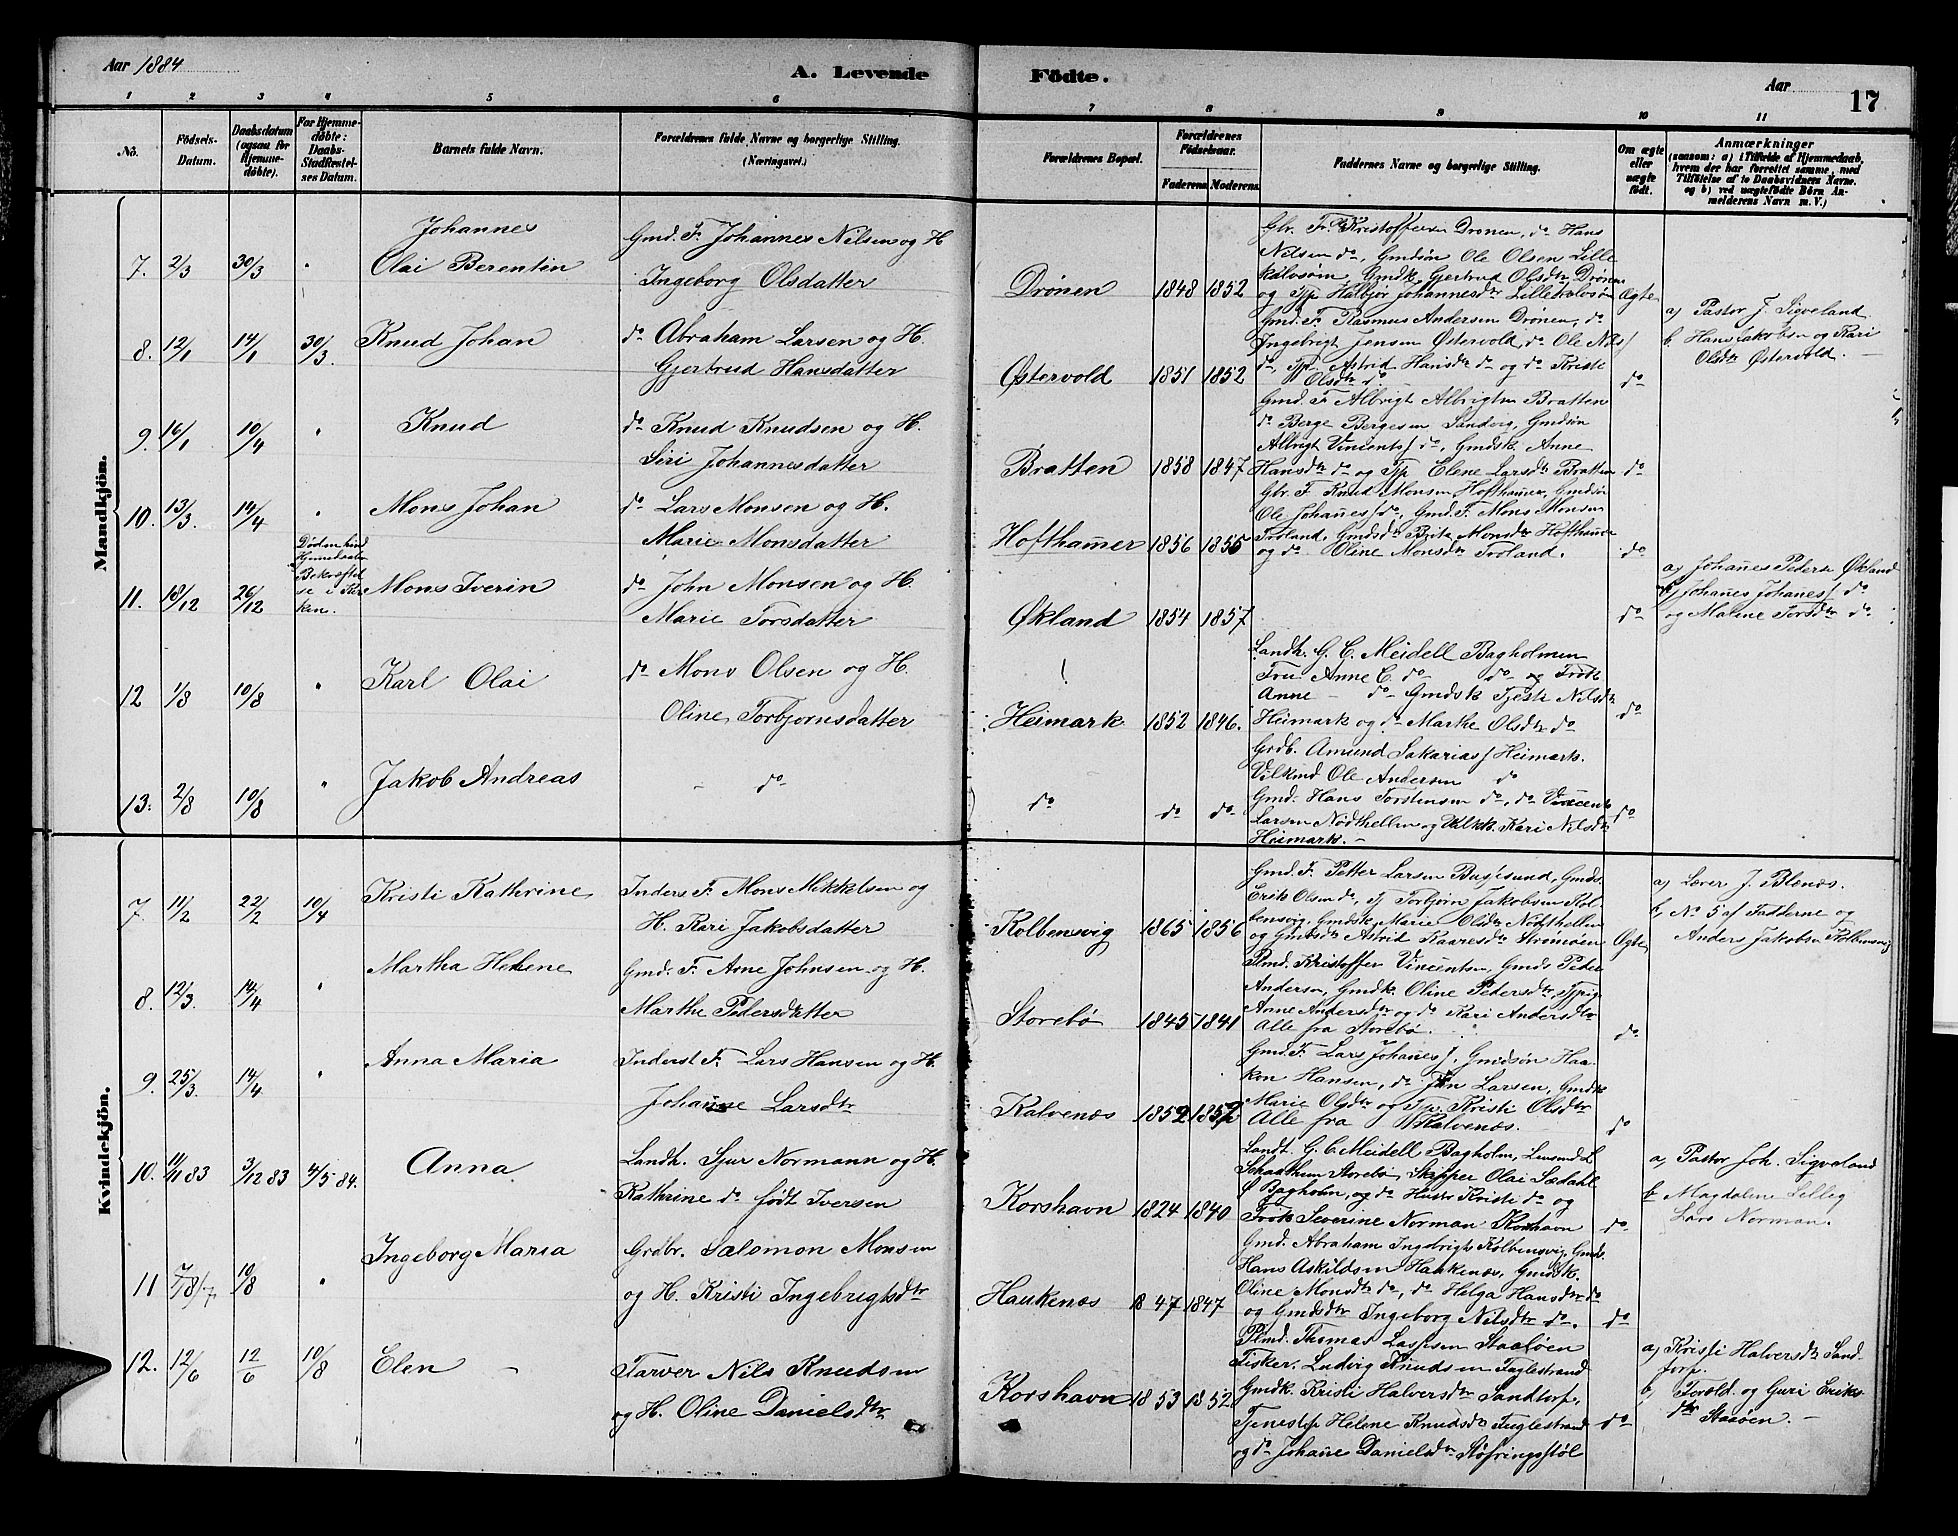 Aar 1884
A. Levende
Födte.
Aar
17
1 2 3 4 5 6 7 8 9 10 11
No.
Födsels-Datum.
Daabsdatum (ogsaa for Hjemmedöbte).
For Hjemmedöbte: Daabs-Stadfæstelses Datum.
Barnets fulde Navn.
Forældrenes fulde Navne og borgerlige Stilling. (Næringsvei.)
Forældrenes Bopæl.
Forældrenes Födselsaar.
Faderens. Moderens.
Faddernes Navne og borgerlige Stilling.
Om ægte eller uægte födt.
Anmærkninger
(saasom: a) i Tilfælde af Hjemmedaab, hvem der har forrettet samme, med Tilföielse af to Daabsvidners Navne. og b) ved uægtefödte Börn Anmelderens Navn m. V.)
Mandkjön.
7. 2/3 30/3 "
Johannes
Olai Berentin
Gmd. F. Johannes Nilsen og H
Ingeborg Olsdatter
Drönen 1848 1852
Gbr. Fr. Kristoffersen Drönen, do Hans
Nilsen do, Gmdsön Ole Olsen Lille
kalvsöm, Gmdk Gjertrud Olsdtr Drönen
og Tjp Halbjör Johannesdtr Lillekalvsöm
Ægte
8. 12/1 14/1 30/3
Knud Johan
do Abraham Larsen og H.
Gjertrud Hansdatter
Östervold 1851 1852
Gmd. F. Rasmus Andersen Drönen, do
Ingebrigt Jensen Östervold, do Ole Nils/
do, Tjp. Astrid Hansdtr do og do Kriste
Olsdtr do
do
a) Pastor J. Sigveland
b. Hans Jakobsen og Kari
Olsdtr Östervold. —
9. 16/1 10/4 "
Knud
do Knud Knudsen og H.
Siri Johannesdatter
Bratten 1858 1847
Gmd. F. Albrigt Albrigtsen Bratten
do Berge Bergesen Sandvig, Gmdsön
Albrigt Vincents/ do, Gmdsk Anne
Hansdtr do og Tjp Elene Larsdtr Bratten
do
10. 13/3. 14/4 "
Mons Johan
do Lars Monsen og H.
Marie Monsdatter
Hofthamer 1856 1855
Gbr. F. Knud Monsen Hofthamer, Gmdsön
Ole Johanes/ do, Gmd. F. Mons Monsen
Troland, Gmdsdtr Brita Monsdtr Hofthamer
og do Oline Monsdtr Troland.
do
11. 18/12 26/12
Döden hind
Bekræftel
se i Kir
ken.
Mons Iverin
do John Monsen og H.
Marie Torsdatter
Ökland 1854 1857
do
a) Johanes Peders Ökland
b) Johanes Johanes/ do
og Malene Torsdtr do
12 1/8 10/8 "
Karl Olai
do Mons Olsen og H.
Oline Torbjornsdatter
Heimark 1852 1846.
Landh. G. C. Meidell Bagholmen
Fru Anne C. do do og Frök
Anne — do Gmdsk Tjeste Nilsdtr
Heimark og do Marthe Olsdtr do
do
13. 2/8 10/8 "
Jakob Andreas
- do
do do do
Grdb. Amund Sakarias/ Heimark.
Vilkind Ole Andersen do
Gmd. Hans Torstensen do, do Vincent
Larsen Nödthellen og Kari Nilsdtr
Heimark. —
do
Kvindekjön.
7. 11/2 22/2 10/4
Kristi Kathrine
Inders F. Mons Mikkelsen og
H. Kari Jakobsdatter
Kolbensvig 1865 1856
Gmd. F. Petter Larsen Busesund, Gmds.
Erik Olsen do, Tj Torbjörn Jakobsen Kol-
bensvig, Gmdsk. Marie Olsdtr Nödthellen
og Gmdsdtr Astrid Kaaresdtr Strömöen
Ægte
a) Lærer J. Blænæs.
b, No 5 af Fadderne og
Anders Jakobsen Kolbensvig
8. 12/3. 14/4 "
Martha Helene
Gmd. F. Arne Johnsen og H.
Marthe Pedersdatter
Storebö 1845 1841
Plmd. Kristoffer Vincentsen, Gmds Peder
Andersen, Gmdk. Oline Pedersdtr, Tjpig
Anne Andersdtr og do Kari Andersdtr
Alle fra Storebö.
do
9. 25/3. 14/4 "
Anna Maria
Inderst F. Lars Hansen og H.
Johanne Larsdtr
Kalvenæs 1852 1857
Gmd. F. Lars Johanes/, Gmdsön Haa-
kon Hansen, do Jon Larsen, Gmdk
Marie Olsdtr og Tjp. Kristi Olsdtr
Alle fra Kalvenæs.
do
10. 11/11 83 3/12 83 4/5 84.
Anna
Landh. Sjur Normann og H.
Kathrine do födt Iversen
Korshavn 1824 1840
Landt. G. C Meidell Bagholm, Lensmd L
Schaathun Storebö, Skipper Olai Sædahl
Bagholm, og do Hustr Kristi do og
Frök Severine Norman Korshavn
do
a, Pastor Joh. Sigveland
b Magdalene Lellig
Lars Norman.
11 7/7 10/8 "
Ingeborg Maria
Grdbr. Salomon Monsen
og H. Kristi Ingebrigtsdtr
Haukenæs 1847 1847
Gmd. Abraham Ingebrigts Kolbensvig, Gmds.
Hans Askildsen Haukenæs, Gmdsk.
Oline Monsdtr do, do Helga Hansdtr do
og Gmdsdtr Ingeborg Nilsdtr do.
do
12. 12/6 12/6 10/8
Elen —
Farver Nils Knudsen
og H. Oline Danielsdtr
Korshavn 1853 1852
Plmd. Thomas Lassesen Staalöen
Fisker. Ludvig Knudsen Fuglestrand
Gmdk. Kristi Halversdtr Sandtorp,
Tjenestp Helene Knudsdtr Fuglestrand
og do Johane Danielsdtr Stöfringsstöl
do
a, Kristi Halversdtr Sand-
torp.
b, Forold. og Guri Eriks
dtr Staöen. —